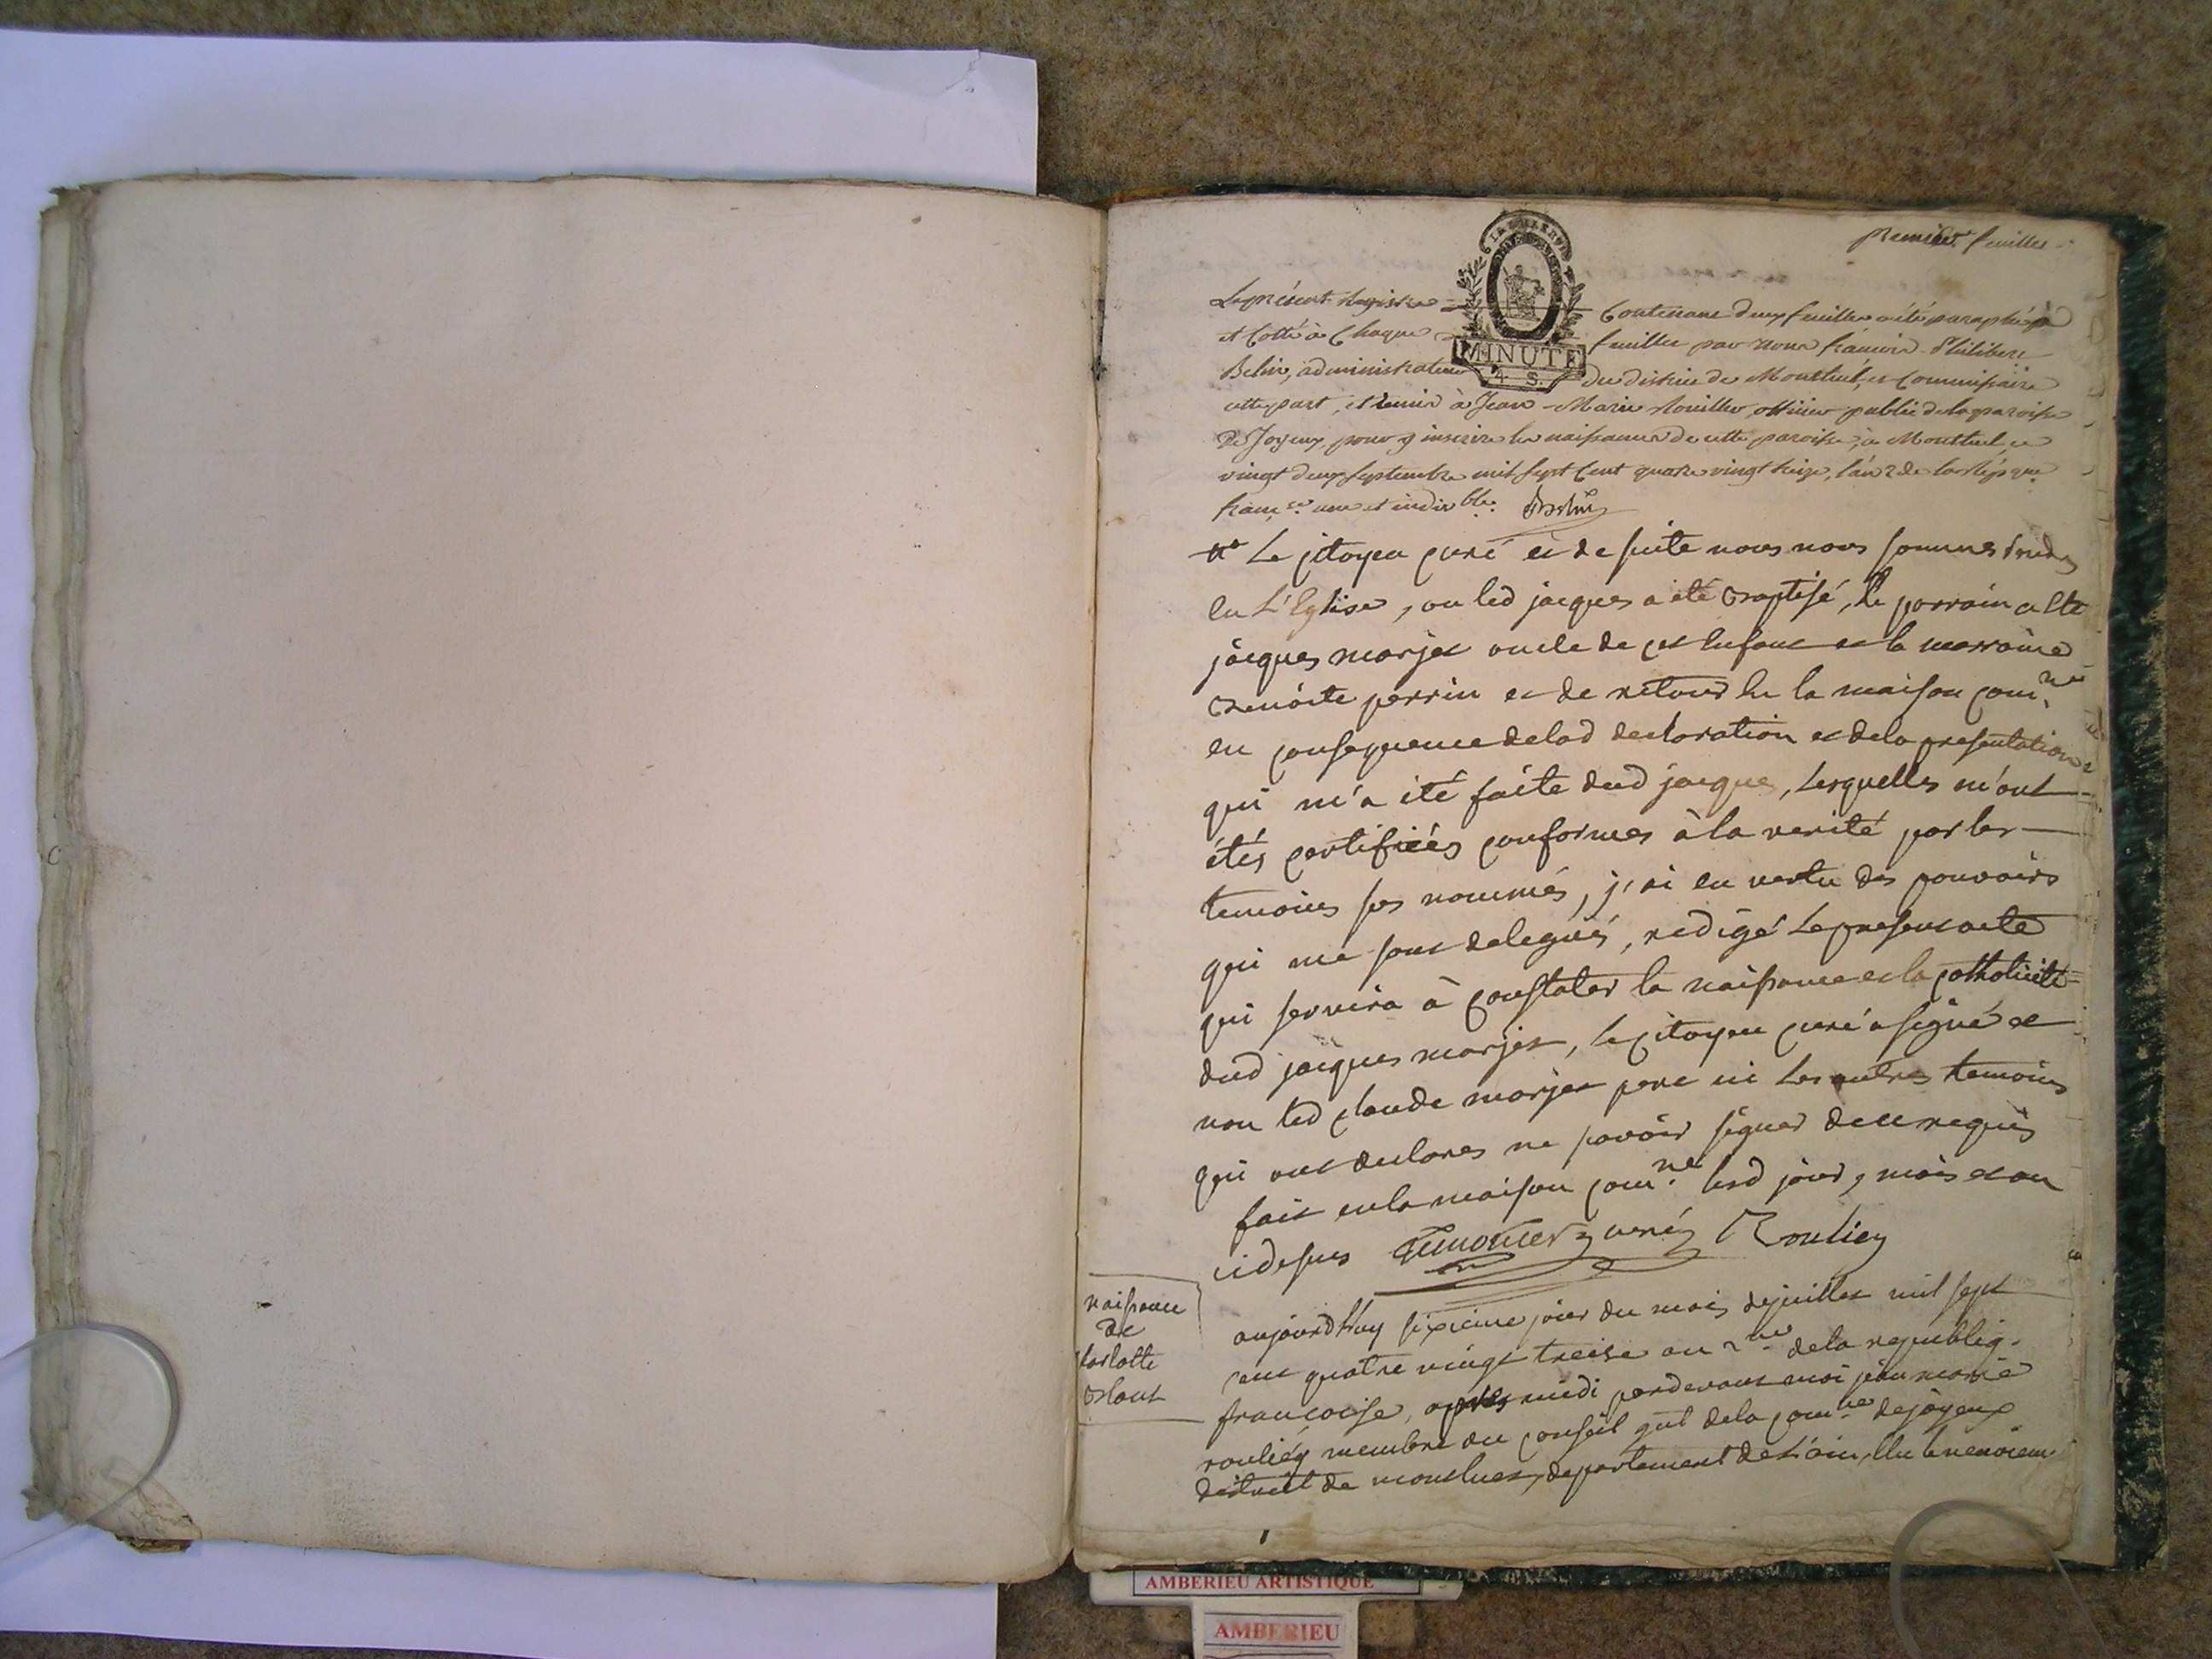 premier feuillet
LA LOI LE ROI
MINUTE
4. S.
Le présent Registre Contenant deux feuilles a été paraphé
et Cotté à Chaque feuillet par nous françois Philibert
Belin, administrateur du district de Montluel, et Commissaire
cette part, et remis à Jean-Marie Rouiller officier public de la paroisse
De Joyeux, pour y inscrire les naissances de cette paroisse, à Montluel ce
vingt deux septembre mil sept Cent quatre vingt treize, l'an 2 de la Rép.que
franc.se une et indiv.ble Belin
Le citoyen curé et de suite nous nous sommes rendus
en L'Eglise, ou led jacques a été Baptisé, le parrain a été
jacques marjet oncle de cet enfant et la marraine
Benoite perrin et de retour en la maison com.ne
en consequence de lad declaration et de la presentation
qui m'a été faite dud jacques, Lesquelles m'ont
étés certifiées conformes à la verité par les
temoins sus nommés, j'ai en vertu des pouvoirs
qui me sont delegués, redigé Le present acte
qui servira à constater la naissance et la catholicité
dud jacques marjet, le citoyen curé a signé et
non led claude marjet pere ni les autres temoins
qui ont declarés ne savoir signer de ce requis
fait en la maison com.ne lesd jour, mois et an
ci dessus curé Rouliey
naissance
de
Carlotte
Blanc
aujourd'huy sixieme jour du mois de juillet mil sept
cent quatre vingt treise an 2.me de la republiq.
françoise, après midi pardevant moi jean marie
rouliey membre du conseil g.nl de la com.ne de joyeux
district de montluel, departement de L'ain,
1
AMBERIEU ARTISTIQUE
AMBERIEU